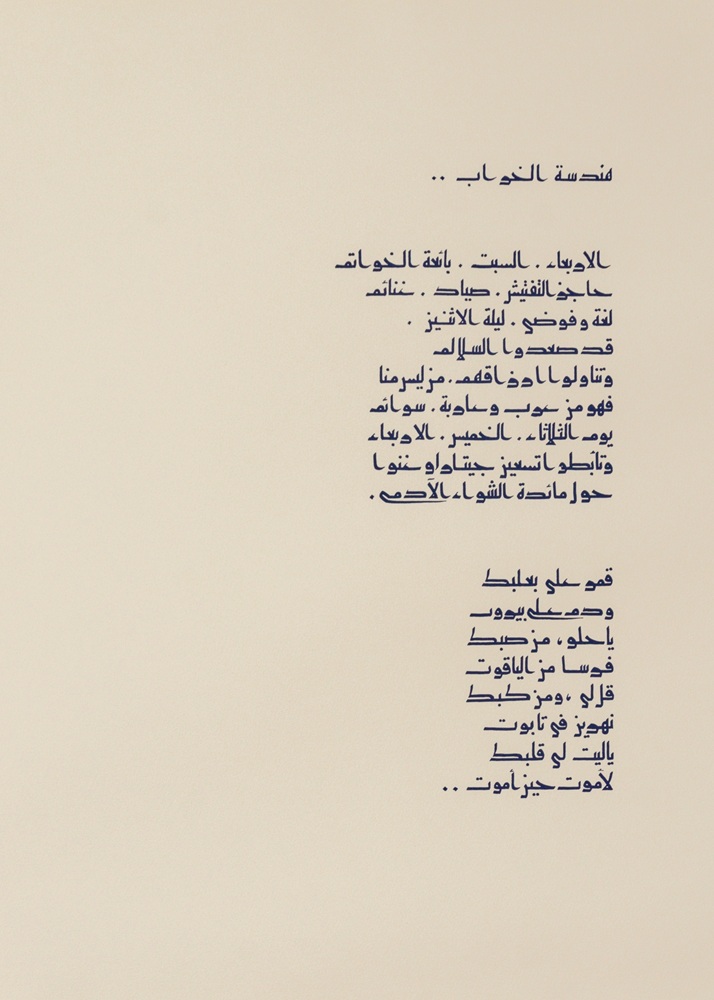 هندسة الخراب ..
الأربعاء . السبت . بائعة الخواتم
حاجز التفتيش . صياد . غنائم
لغة وفوضى . ليلة الاثنين .
قد صعدوا السلالم
وتناولوا أذواقهم . من ليس منا
فهو من عرب وعاربة . سوائم
يوم الثلاثاء . الخميس . الأربعاء
وتأبطوا تسعين جيتارا وغنوا
حول مائدة الشواء الآدمي .
قمر على بعلبك
ودم على بيروت
يا حلو ، من صبك
فرسا من الياقوت
قل لي ، ومن كبك
نهرين في تابوت
يا ليت لي قلبك
لأموت حين أموت ..